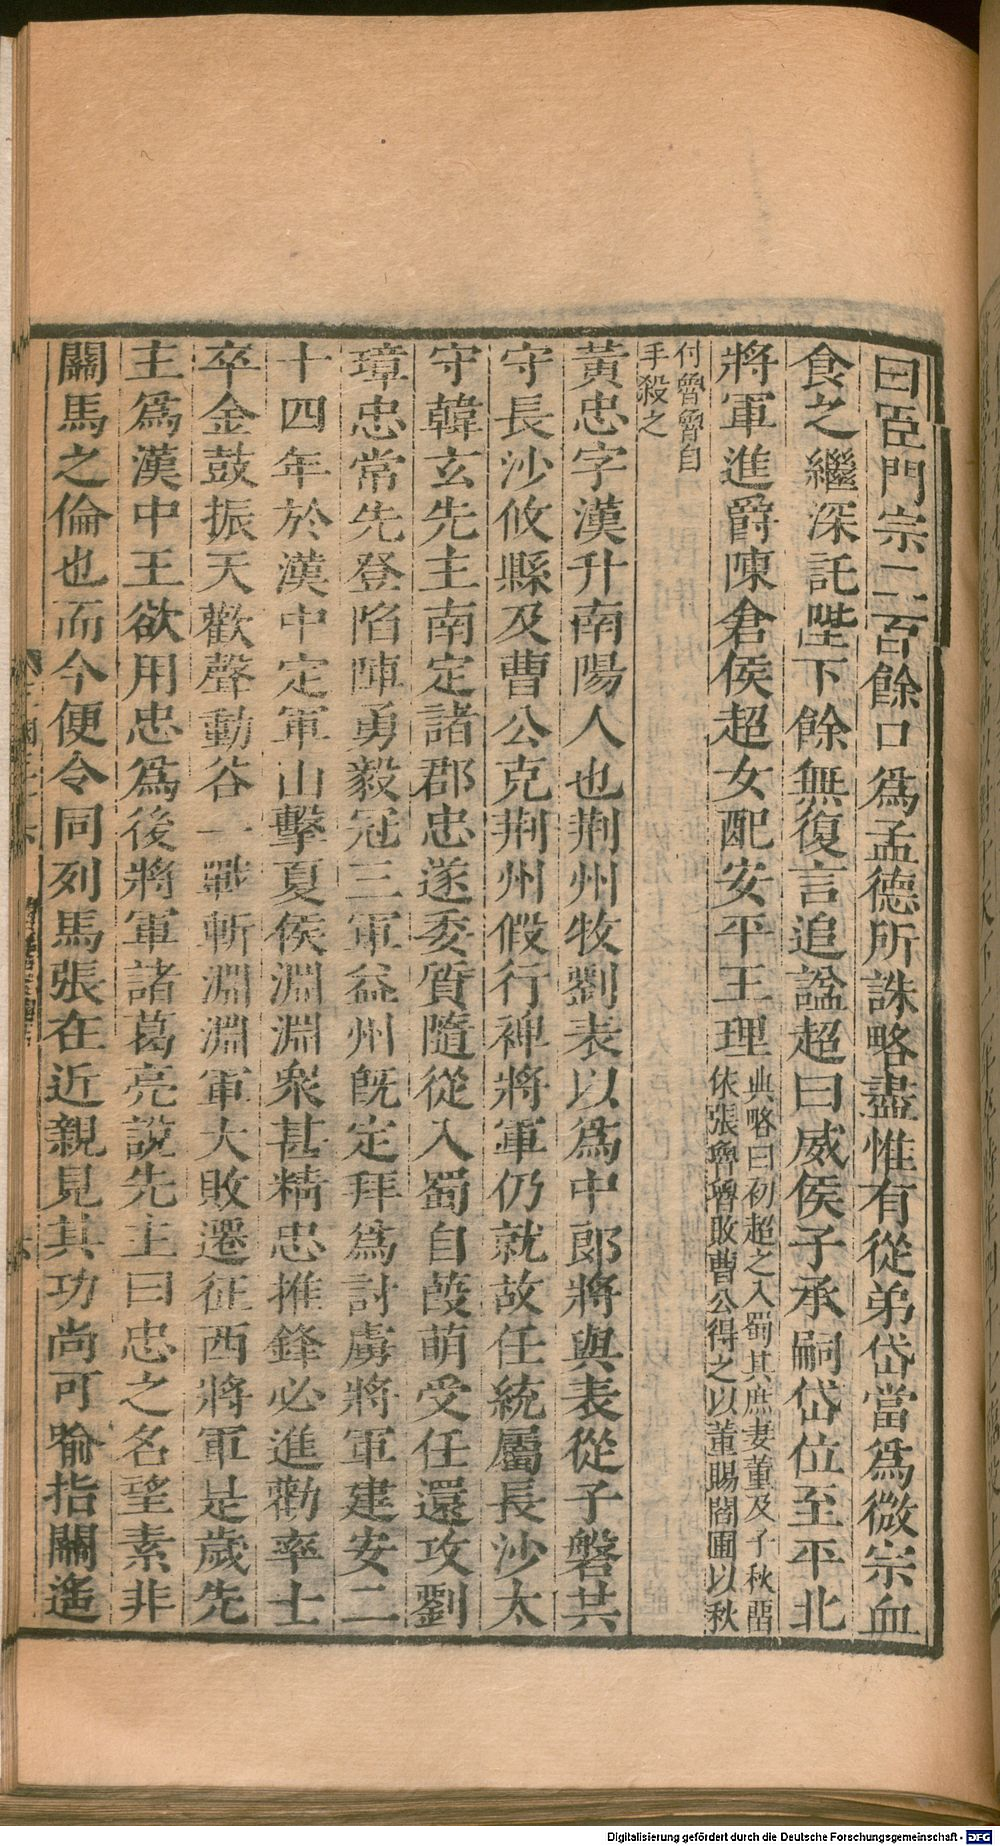 曰臣門宗二百餘口爲孟德所誅略盡惟有從弟岱當爲微宗血
食之繼深託陛下餘無復言追諡超曰威侯子承嗣岱位至平北
將軍進爵陳倉侯超女配安平王理
典略曰初超之入蜀其庶妻董及子秋畱
依張魯魯敗曹公得之以董賜閻圃以秋
付魯魯自
手殺之
黃忠字漢升南陽人也荆州牧劉表以爲中郞將與表從子磐共
守長沙攸縣及曹公克荆州假行裨將軍仍就故任統屬長沙太
守韓玄先主南定諸郡忠遂委質隨從入蜀自葭萌受任還攻劉
璋忠常先登陷陣勇毅冠三軍益州旣定拜爲討虜將軍建安二
十四年於漢中定軍山擊夏侯淵淵衆甚精忠推鋒必進勸率士
卒金鼓振天歡聲動谷一戰斬淵淵軍大敗遷征西將軍是歲先
主爲漢中王欲用忠爲後將軍諸葛亮說先主曰忠之名望素非
關馬之倫也而今便令同列馬張在近親見其功尚可喻指關遙
Digitalisierung gefördert durch die Deutsche Forschungsgemeinschaft - DFG